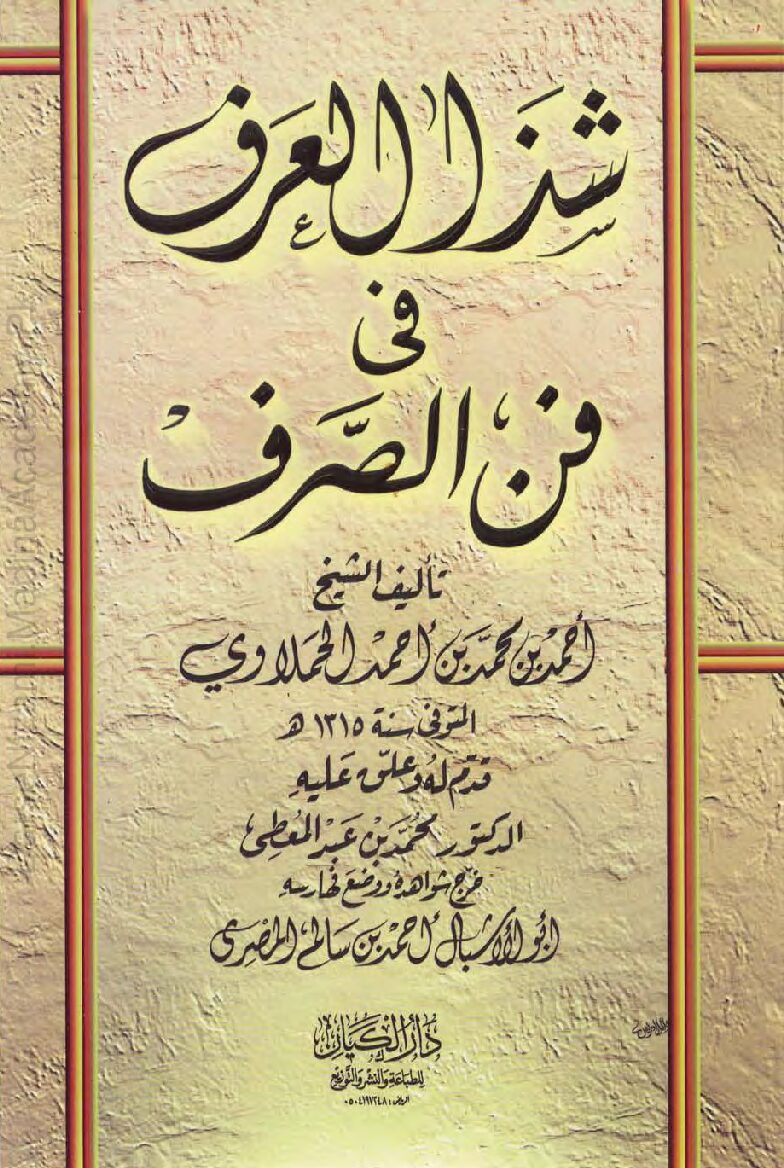 شَذَا العَرف
فى
فن الصَّرفْ
تأليف الشيخ
أحمَدْ بن محمَّد بن أحمد الحملاوي
المتوفى سنة ١٣١٥ هـ
قدّم له وعلّق عَليهِ
الدكتور محُمَّد بْن عَبْد المُعطِى
خرّج شواهدهُ ووضع فهارسه
أبو الأشبال أحمد بن سالم المصرى
دَارُ الكيَان
للطبَاعَة والنشر والتَّوزيع